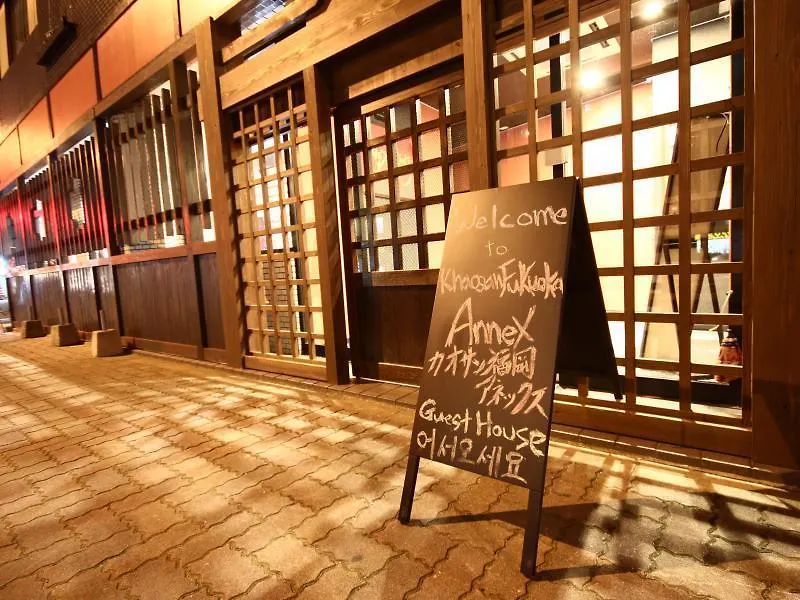 Welcome
to
KhaosanFukuoka
Annex
カオサン福岡
アネックス
Guest House
어서오세요